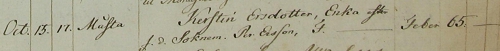 Oct. 15. 17. Mulsta Kerstin Ersdotter, Enka efter Feber 65.
f. d. Soknem. Per Ersson, I.